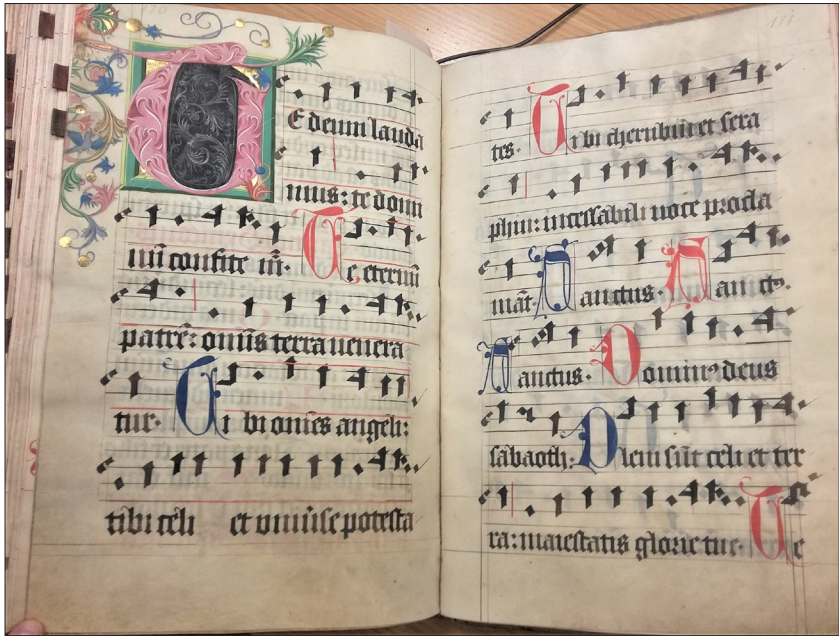 TE deum lauda
mus: te domi
nū confite m̄. Te eternū
patrē: omīs terra uenera
tur. Tibi omēs angeli:
tibi celi et vniuse potesta
171
tes. Tibi cherubin et sera
phin: incessabili uoce procla
māt. Sanctus. Sanctꝰ.
Sanctus. Dominꝰ deus
sabaoth. Pleni sūt celi et ter
ra: maiestatis glorie tue. Te